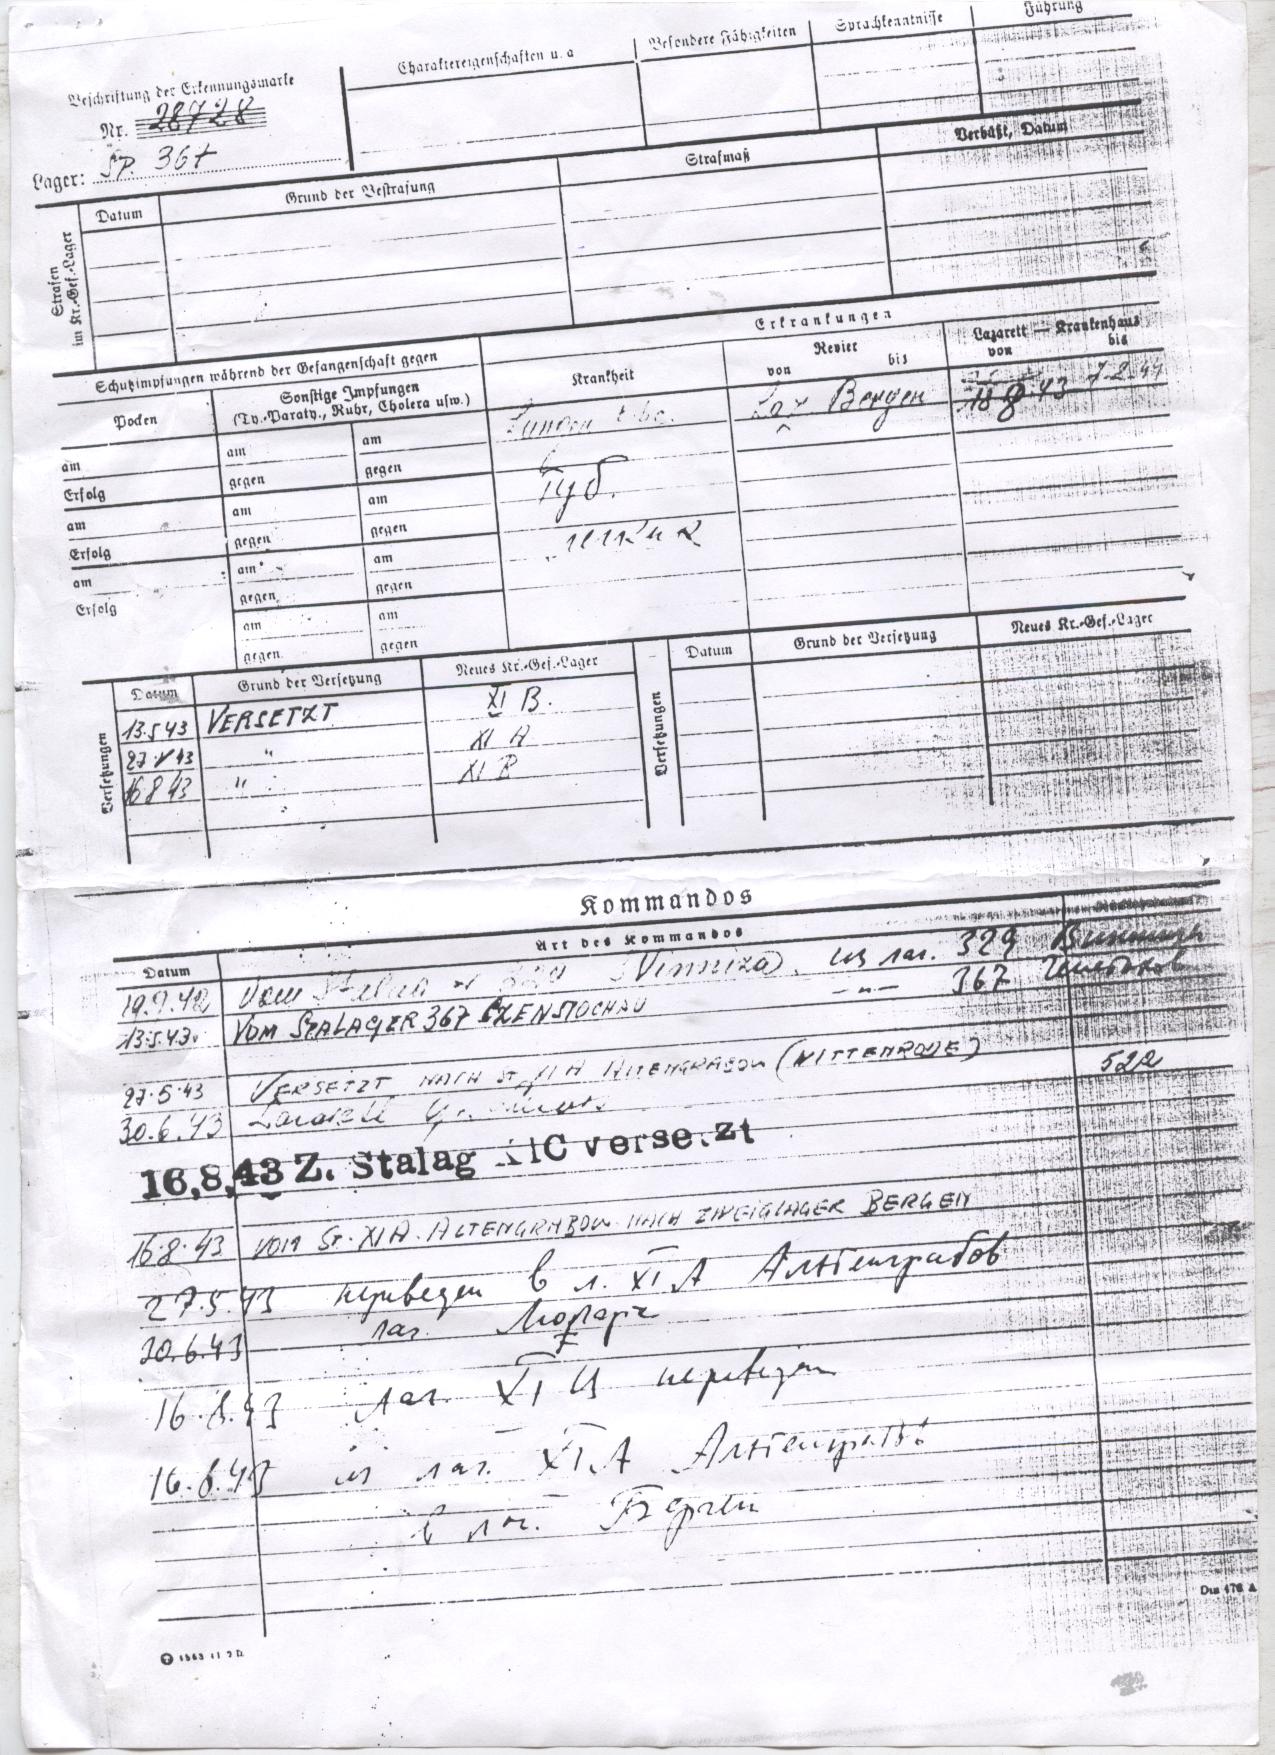 Beschriftung der Erkennungsmarke
Nr. 28728
Lager: SP. 367
Charaktereigenschaften u. a
Besondere Fähigkeiten
Sprachkenntnisse
Führung
Strafen im Kr.-Gef.-Lager
Datum
Grund der Bestrafung
Strafmaß
Verbüßt, Datum
Schutzimpfungen während der Gefangenschaft gegen
Erkrankungen
Pocken
Sonstige Impfungen
(Ty.-Paraty., Ruhr, Cholera usw.)
Krankheit
Revier
von bis
Lazarett — Krankenhaus
von bis
am am am
Erfolg gegen gegen
am am am
Erfolg gegen gegen
am am am
Erfolg gegen gegen
am am
gegen gegen
Lungen tbc. Laz Bergen 18 8 43 7.2.44
Туб.
легких
Versetzungen
Datum Grund der Versetzung Neues Kr.-Gef.-Lager
13.5 43 VERSETZT XI B.
27 V 43 " XI A
16 8 43 " XI B
Versetzungen
Datum Grund der Versetzung Neues Kr.-Gef.-Lager
Kommandos
Datum Art des Kommandos
Vom Stalag (Vinniza) из лаг. 329 Винница
13.5.43. VOM STALAGER 367 CZENSTOCHAU —"— 367
27.5.43 VERSETZT NACH ST. XI A ALTENGRABOW (WITTENRODE) 522
30.6.43 Lazarett
16,8,43 Z. Stalag XIC versetzt
16.8.43 VOM ST. XI A. ALTENGRABOW NACH ZWEIGLAGER BERGEN
27.5.43 переведен в л. XI A Альтенграбов
лаз.
16.8.43 лаг. XI Ц переведен
из лаг. XI A Альтенграбов
в лаг. Берген